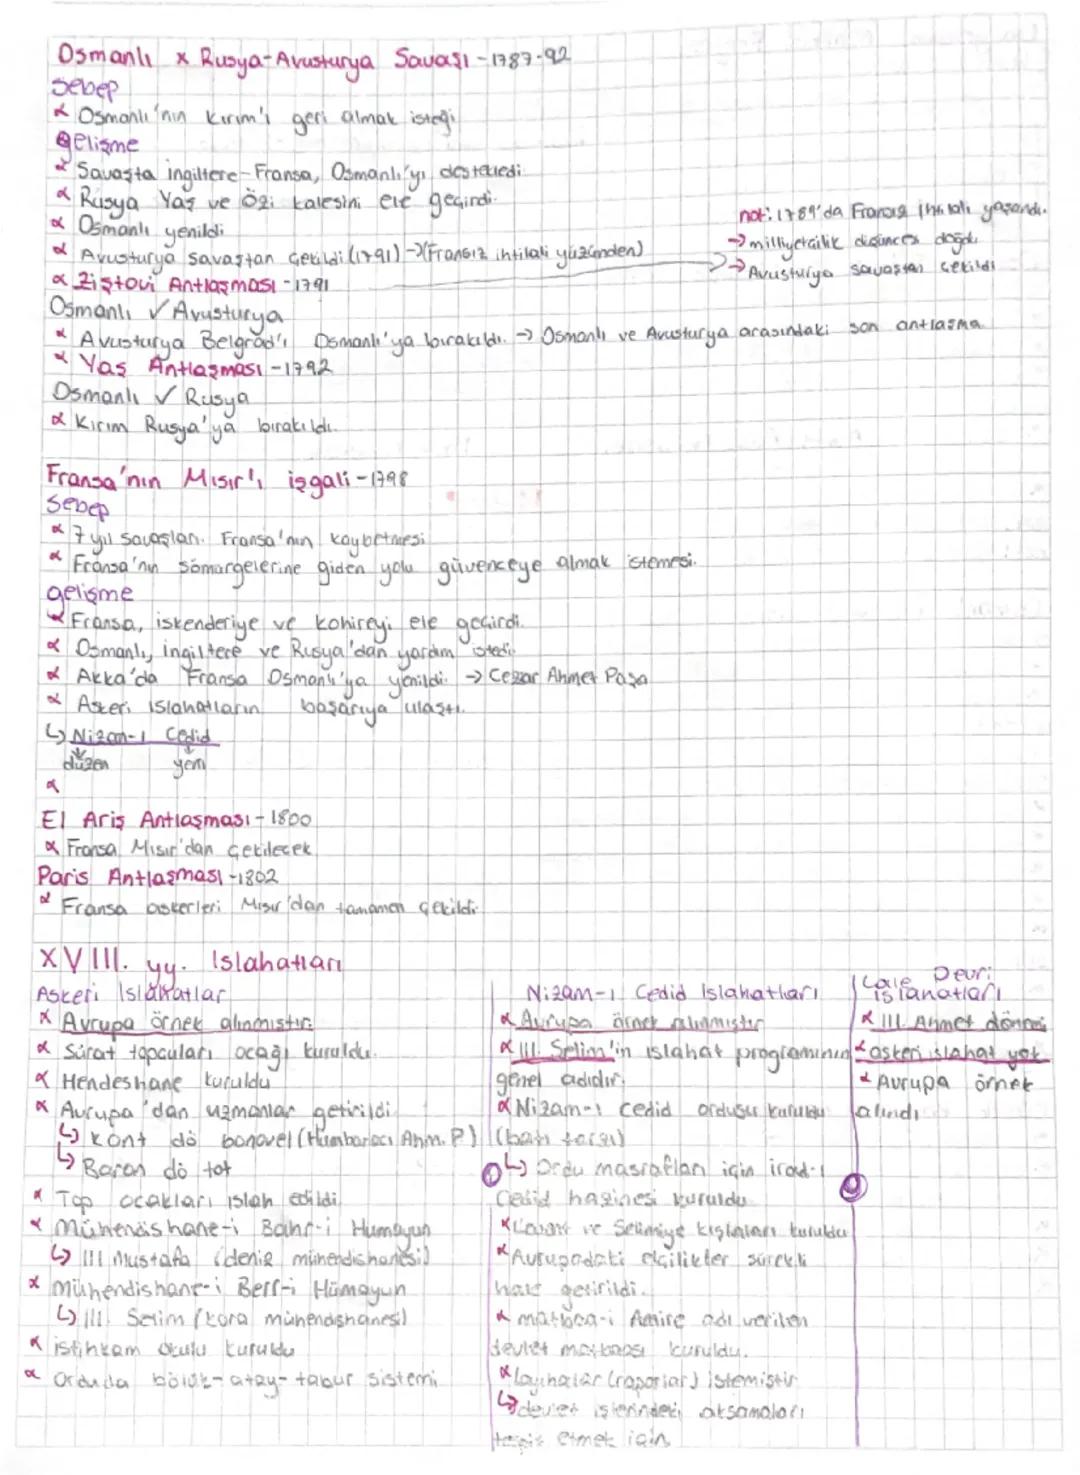 Osmanlı x Rusya-Avusturya Savaşı - 1787-92
Sebep
Osmanlı'nın Kırım'ı geri almak isteği
gelişme
Savaşta ingiltere-Fransa, Osmanlı'yı destekledi
Rusya Yaş ve Özi kalesini ele geçirdi.
Osmanlı yenildi
Avusturya savaştan çekildi (1791) → (Fransız ihtilali yüzünden)
not: 1789'da Fransız ihtilali yaşandı.
→ milliyetçilik düşünces doğdu
→ Avusturya savaştan çekildi
Ziştovi Antlaşması - 1791
Osmanlı ✓ Avusturya
Avusturya Belgrad'ı Osmanlı'ya bırakıldı. → Osmanlı ve Avusturya arasındaki son antlaşma
Yaş Antlaşması - 1792
Osmanlı ✓ Rusya
Kırım Rusya'ya bırakıldı.
Fransa'nın Mısır'ı işgali - 1798
Sebep
7 yıl savaşları. Fransa'nın kaybetmesi
Fransa'nın sömürgelerine giden yolu güvenceye almak istemesi.
gelişme
Fransa, iskenderiye ve kahireyi ele geçirdi.
Osmanlı, ingiltere ve Rusya'dan yardım istedi.
Akka'da Fransa Osmanlı'ya yenildi → Cezzar Ahmet Paşa
Askeri ıslahatların başarıya ulaştı.
↳ Nizam-ı Cedid
düzen yeni
El Ariş Antlaşması - 1800
Fransa Mısır'dan çekilecek
Paris Antlaşması - 1802
Fransa askerleri Mısır'dan tamamen çekildi.
XVIII. yy. Islahatları
Askeri Islahatlar
Avrupa örnek alınmıştır.
Sürat topçuları ocağı kuruldu.
Hendeshane kuruldu
Avrupa'dan uzmanlar getirildi
↳ Kont dö bonovel (Humbaracı Ahm. P)
↳ Baron dö tot
Top ocakları ıslah edildi
Mühendishane-i Bahr-i Humayun
↳ III Mustafa (deniz mühendishanesi)
Mühendishane-i Berr-i Hümayun
↳ III. Selim (kara mühendishanesi)
istihkam okulu kuruldu
Orduda bölük-alay-tabur sistemi
Nizam-ı Cedid Islahatları
Avrupa örnek alınmıştır
III. Selim'in ıslahat programının
genel adıdır.
Nizam-ı cedid ordusu kuruldu
(batı tarzı)
↳ Ordu masrafları için irad-ı
Cedid hazinesi kuruldu
Levent ve Selimiye kışlaları kuruldu
Avrupadaki elçilikler sürekli
hale getirildi.
matbaa-i Amire adı verilen
devlet matbaası kuruldu.
layihalar (raporlar) istemiştir
↳ devlet işlerindeki aksamaları
tespit etmek için
Lale Devri
ıslahatları
III. Ahmet dönemi
askeri ıslahat yok
Avrupa örnek
alındı